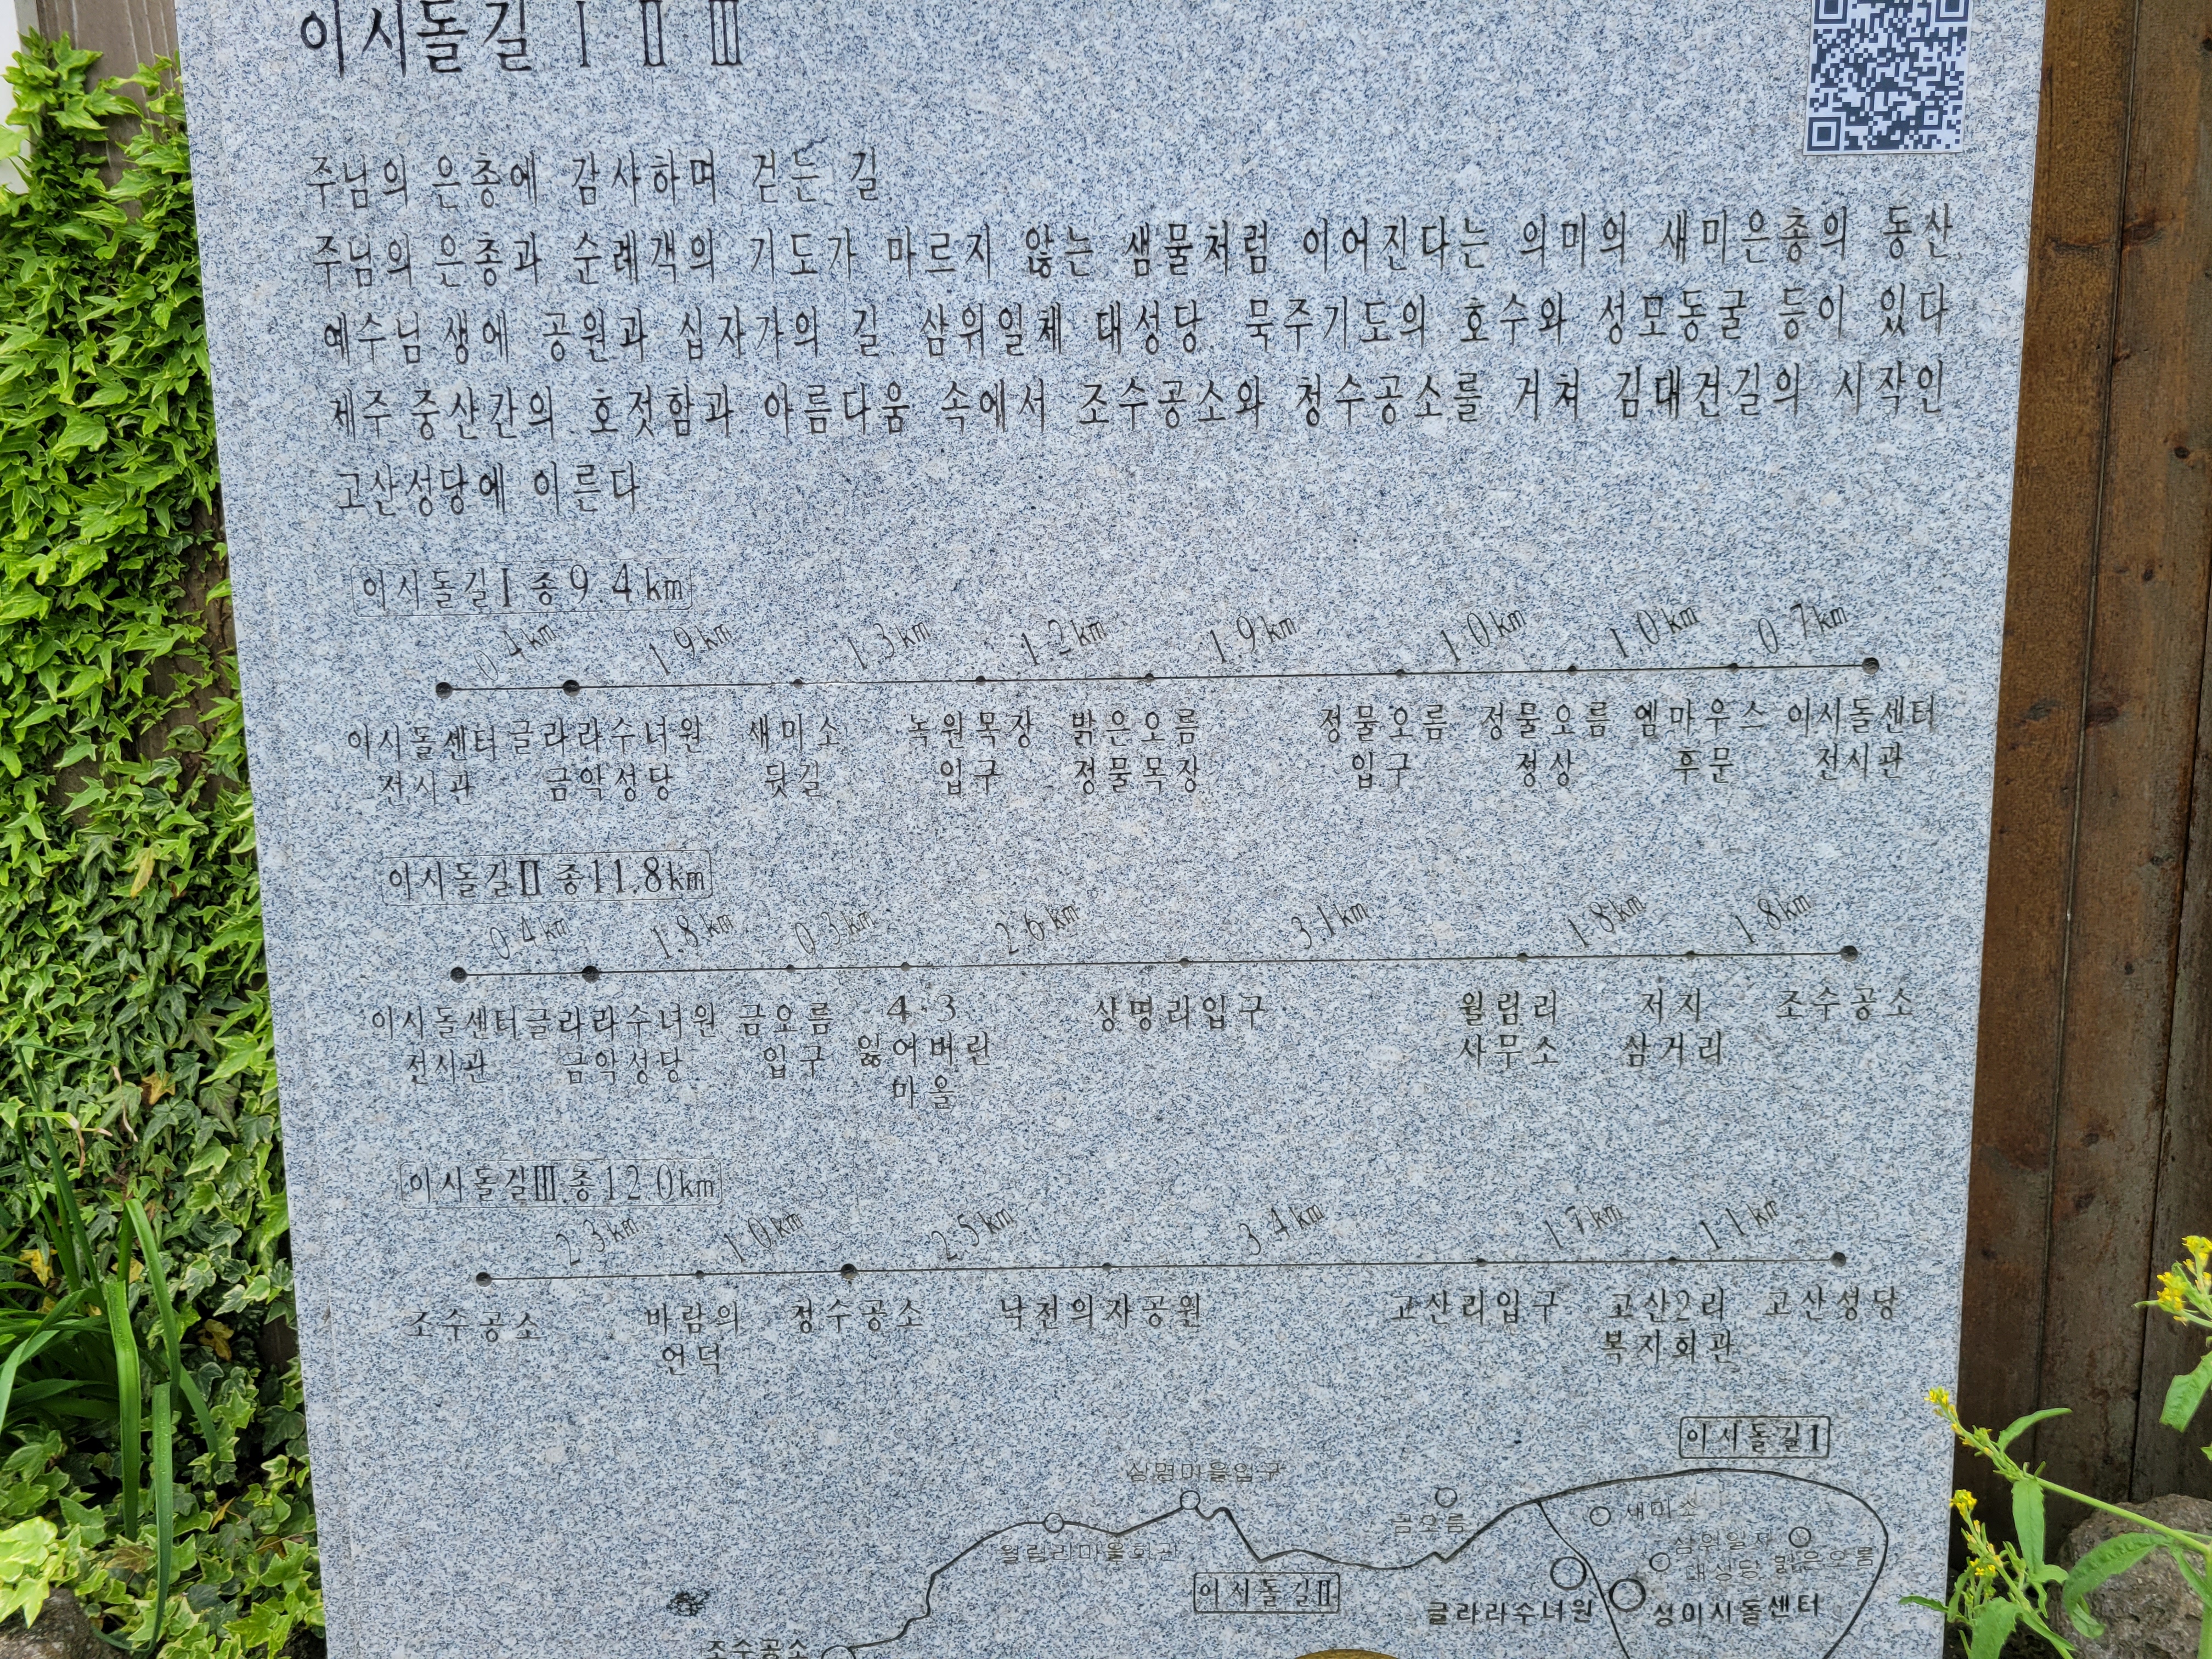 이시돌길 Ⅰ Ⅱ Ⅲ
주님의 은총에 감사하며 걷는 길
주님의 은총과 순례객의 기도가 마르지 않는 샘물처럼 이어진다는 의미의 새미은총의 동산
예수님 생애 공원과 십자가의 길 삼위일체 대성당 묵주기도의 호수와 성모동굴 등이 있다
제주 중산간의 호젓함과 아름다움 속에서 조수공소와 청수공소를 거쳐 김대건길의 시작인
고산성당에 이른다
이시돌길Ⅰ 총 9.4km
0.4km 1.9km 1.3km 1.2km 1.9km 1.0km 1.0km 0.7km
이시돌센터 글라라수녀원 새미소 녹원목장 밝은오름 정물오름 정물오름 엠마우스 이시돌센터
전시관 금악성당 뒷길 입구 정물목장 입구 정상 후문 전시관
이시돌길Ⅱ 총11.8km
0.4km 1.8km 0.3km 2.6km 3.1km 1.8km 1.8km
이시돌센터 글라라수녀원 금오름 4·3 상명리입구 월림리 저지 조수공소
전시관 금악성당 입구 잃어버린 사무소 삼거리
마을
이시돌길Ⅲ 총12.0km
2.3km 1.0km 2.5km 3.4km 1.7km 1.1km
조수공소 바람의 청수공소 낙천의자공원 고산리입구 고산2리 고산성당
언덕 복지회관
이시돌길Ⅰ
상명마을입구
금오름
새미소
월림리마을회관
삼위일체
대성당 밝은오름
이시돌길Ⅱ
글라라수녀원 성이시돌센터
조수공소